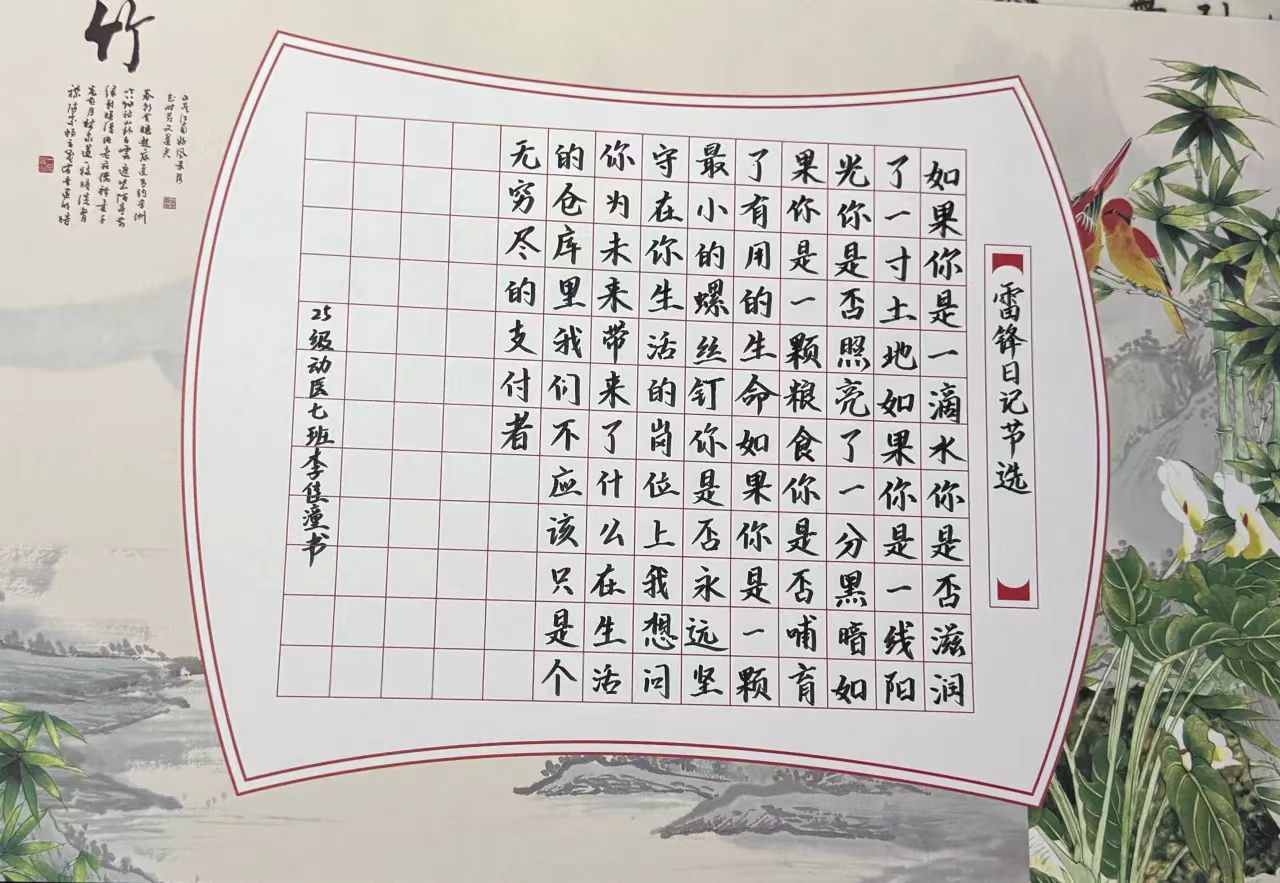 雷锋日记节选
如果你是一滴水你是否滋润
了一寸土地如果你是一线阳
光你是否照亮了一分黑暗如
果你是一颗粮食你是否哺育
了有用的生命如果你是一颗
最小的螺丝钉你是否永远坚
守在你生活的岗位上我想问
你为未来带来了什么在生活
的仓库里我们不应该只是个
无穷尽的支付者
25级动医七班李佳潼书
竹